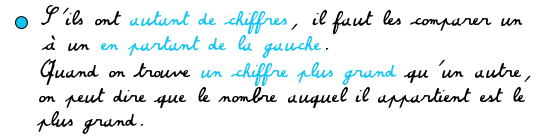 S'ils ont autant de chiffres, il faut les comparer un
à un en partant de la gauche.
Quand on trouve un chiffre plus grand qu'un autre,
on peut dire que le nombre auquel il appartient est le
plus grand.